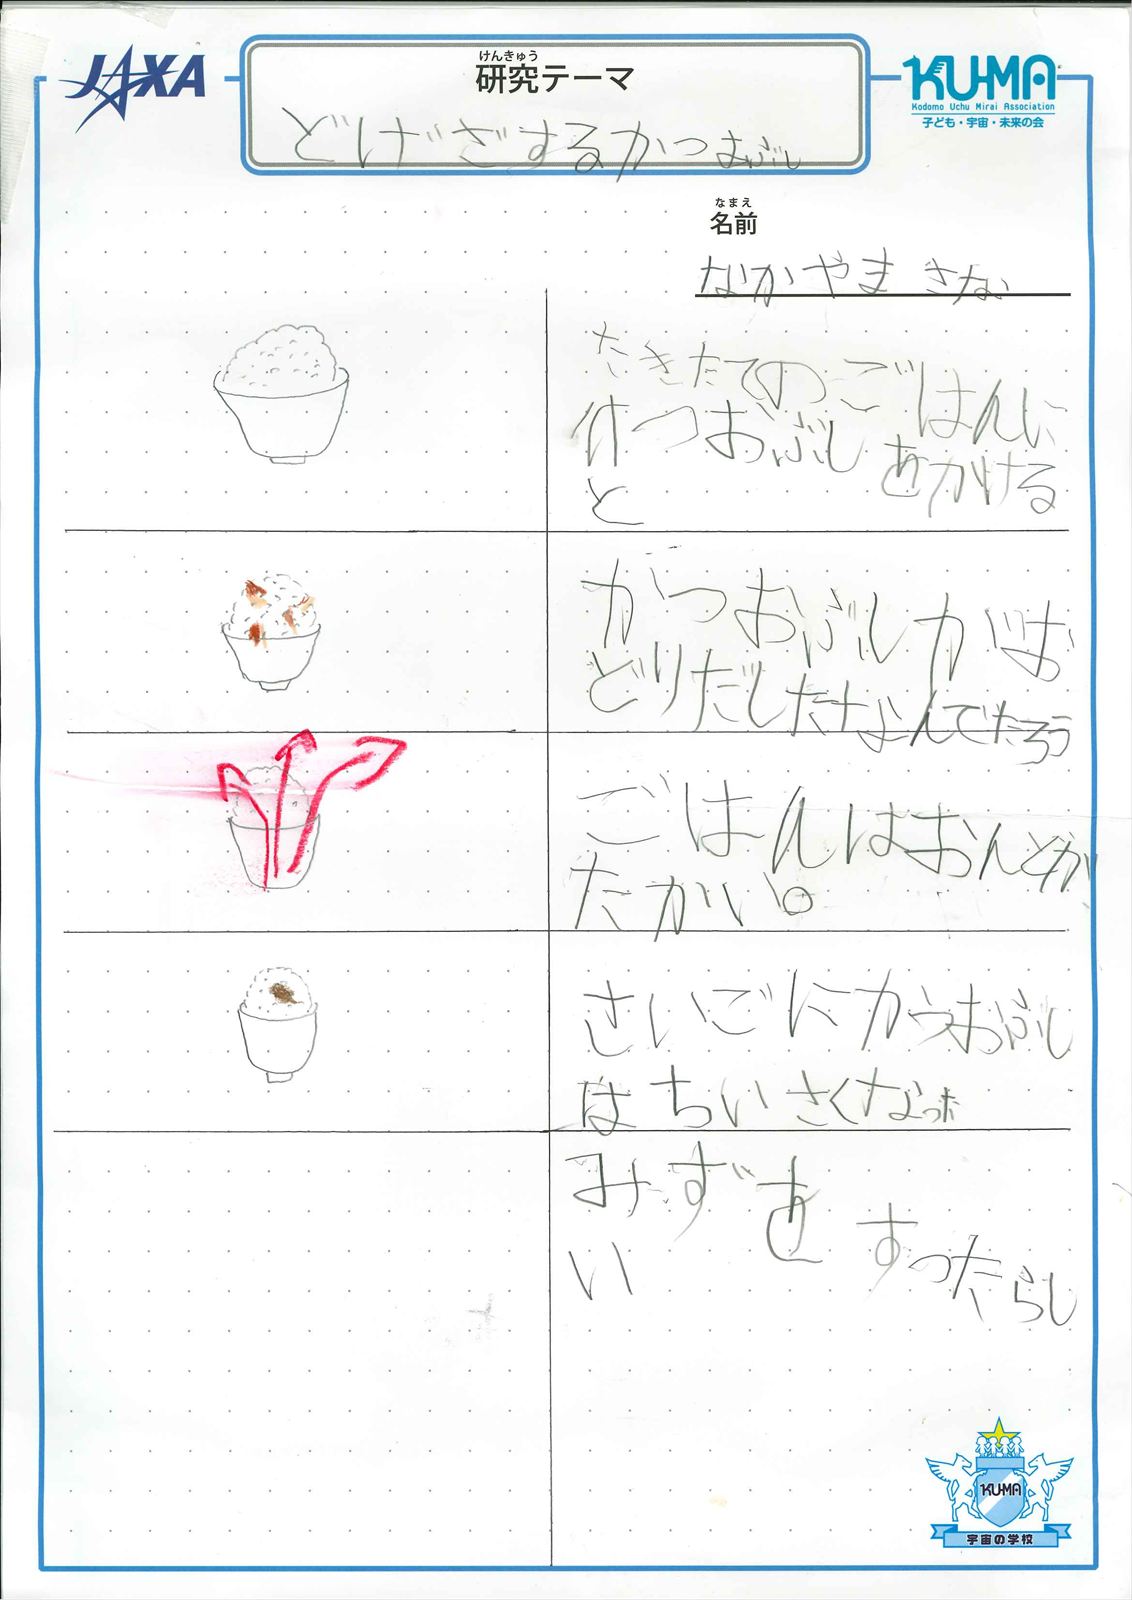 JAXA
けんきゅう
研究テーマ
KU-MA
Kodomo Uchu Mirai Association
子ども・宇宙・未来の会
どげざするかつおぶし
なまえ
名前
なかやま きない
たきたてのごはんに
かつおぶしをかける
と
かつおぶしがお
どりだしたなんでだろう
ごはんはおんどが
たかい。
さいごにかつおぶし
はちいさくなった
みずをすったらし
い
KU-MA
宇宙の学校